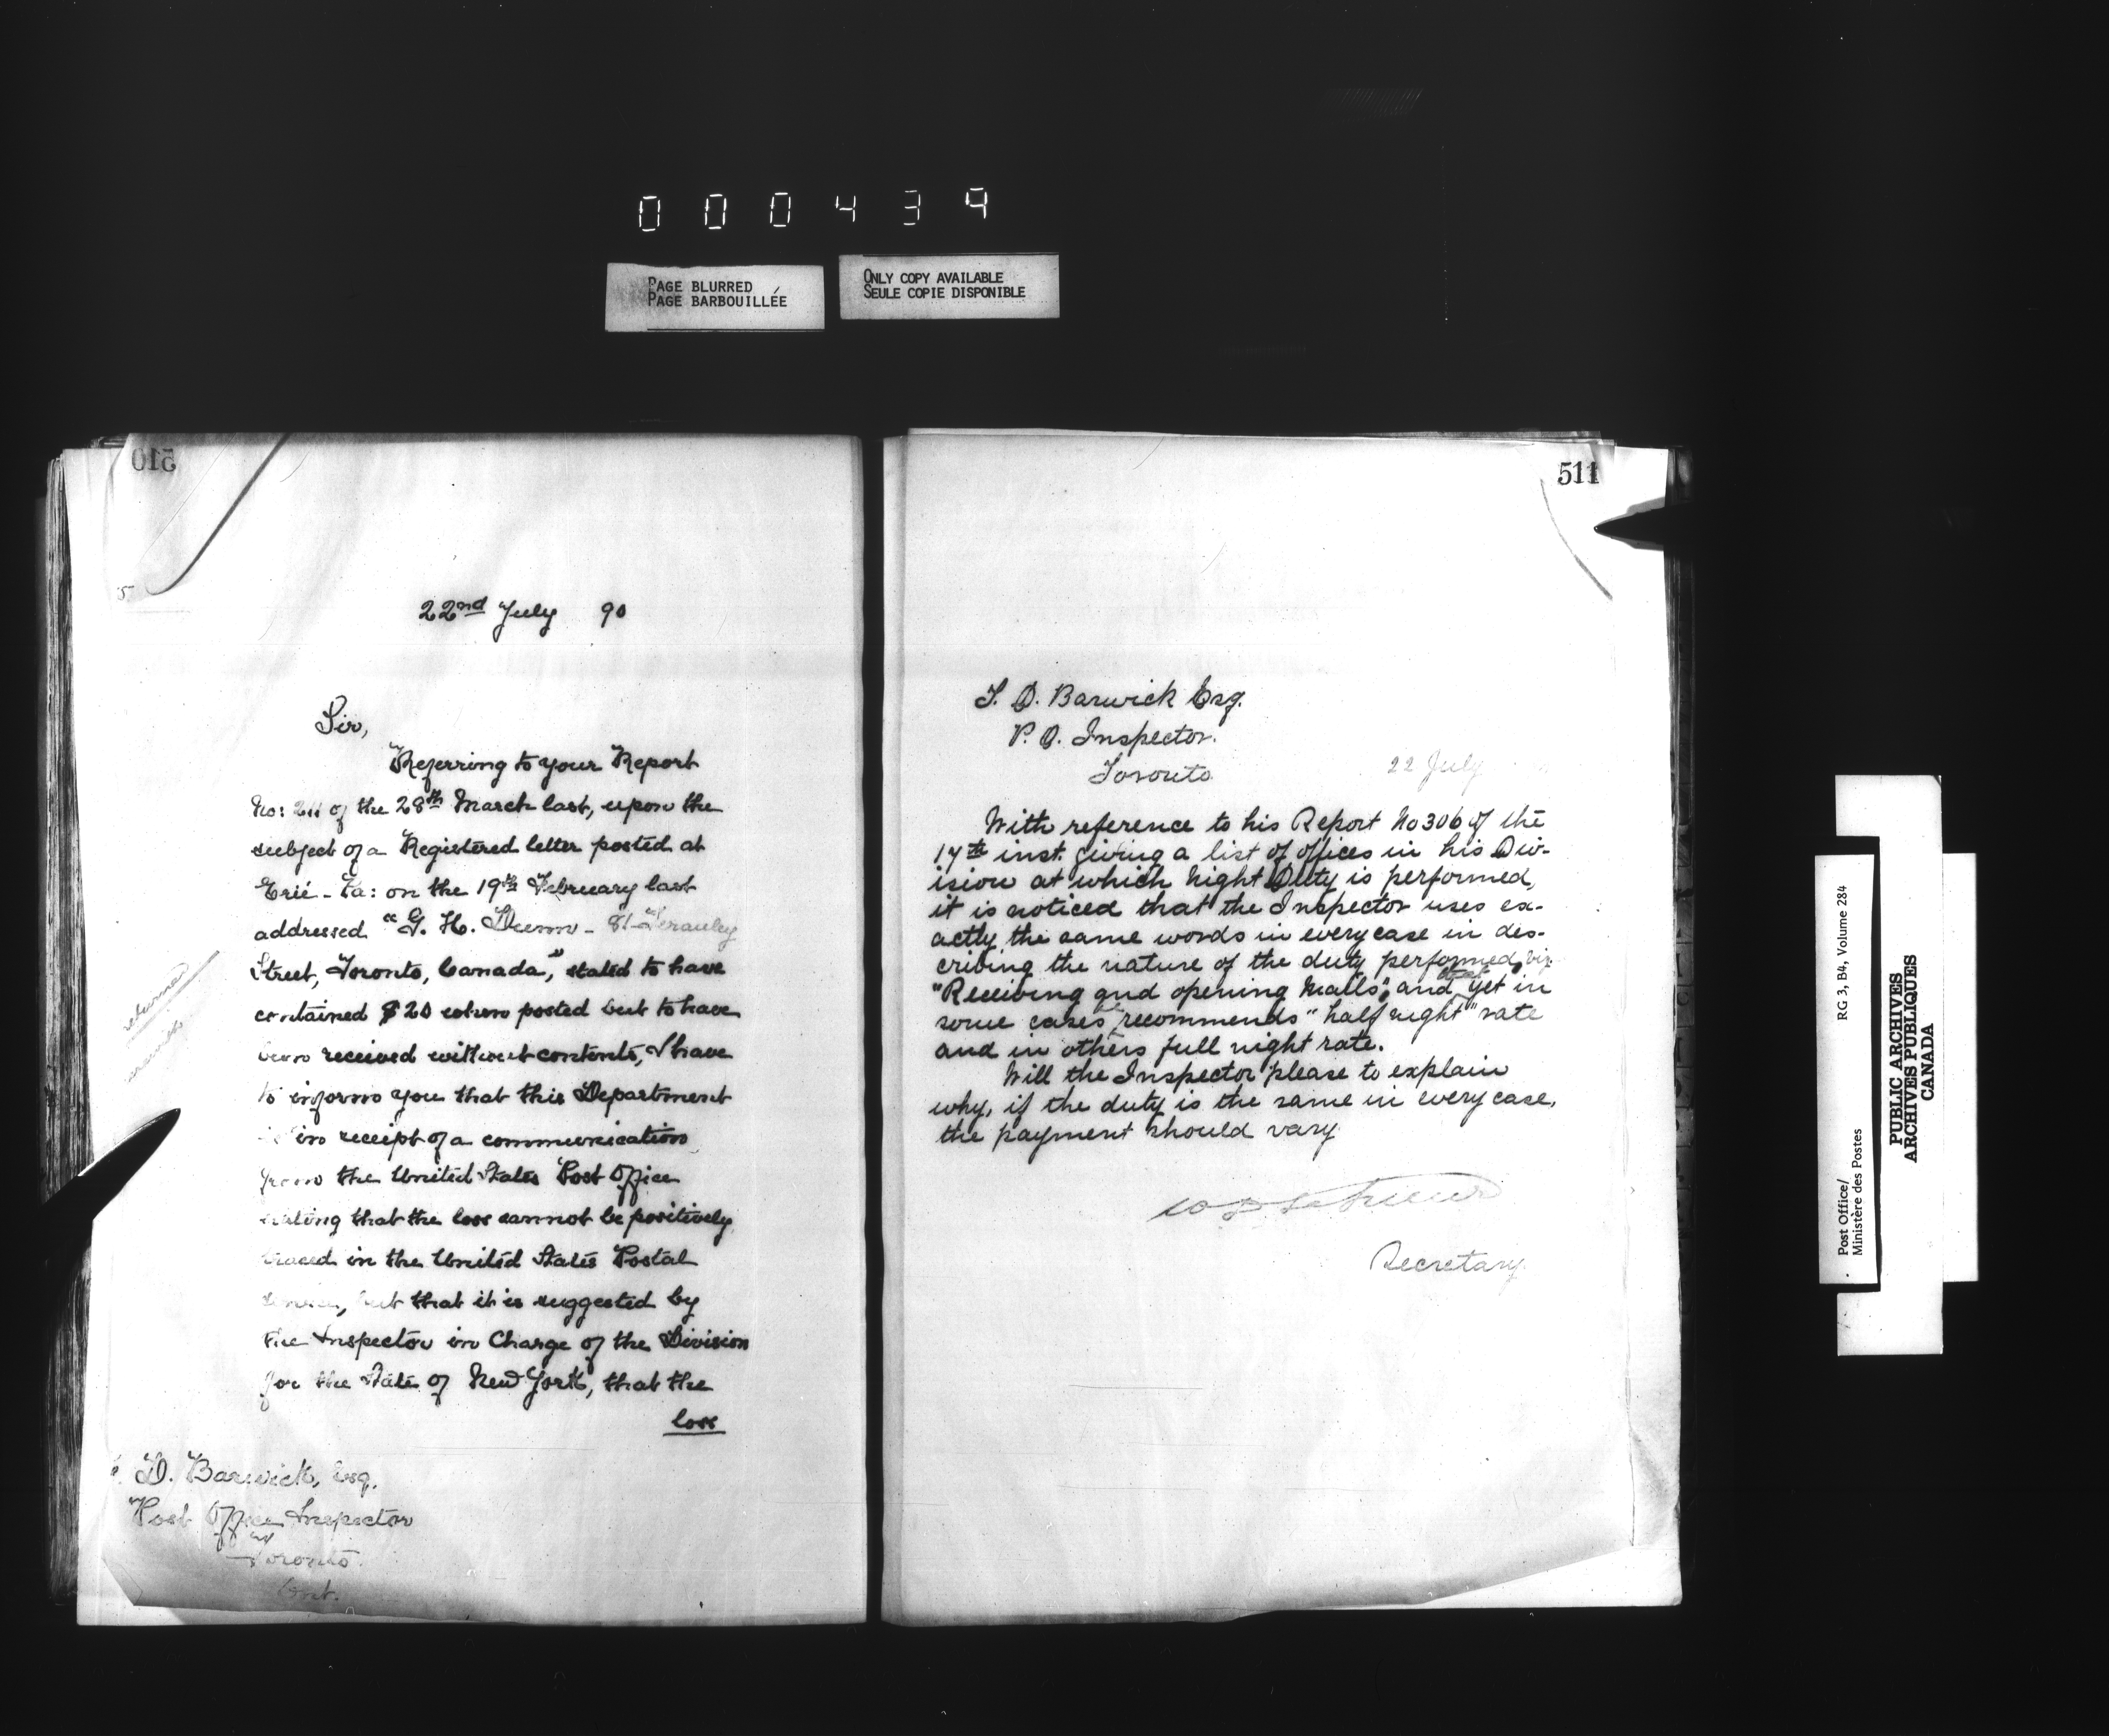 000439
PAGE BLURRED
PAGE BARBOUILLÉE
ONLY COPY AVAILABLE
SEULE COPIE DISPONIBLE
510
22nd July 90
Sir,
Referring to your Report
No: 211 of the 28th March last, upon the
subject of a Registered letter posted at
Erie - Pa: on the 19th February last
addressed "G. H. Dunn - 81 Terauley
Street, Toronto, Canada," stated to have
contained $20 when posted but to have
been received without contents, I have
to inform you that this Department
is in receipt of a communication
from the United States Post Office
stating that the loss cannot be positively
traced in the United States Postal
service, but that it is suggested by
the Inspector in Charge of the Division
for the State of New York, that the
loss
D. Barwick, Esq.
Post Office Inspector
Toronto.
Ont.
returned
511
T. D. Barwick Esq.
P. O. Inspector.
Toronto
22 July
With reference to his Report No 306 of the
17th inst. giving a list of offices in his Div-
ision at which Night Duty is performed,
it is noticed that the Inspector uses ex-
actly the same words in every case in des-
cribing the nature of the duty performed, viz
"Receiving and opening Mails", and yet in
some cases he recommends "half night" rate
and in others full night rate.
Will the Inspector please to explain
why, if the duty is the same in every case,
the payment should vary
Secretary
Post Office/
Ministère des Postes
RG 3, B4, Volume 284
PUBLIC ARCHIVES
ARCHIVES PUBLIQUES
CANADA